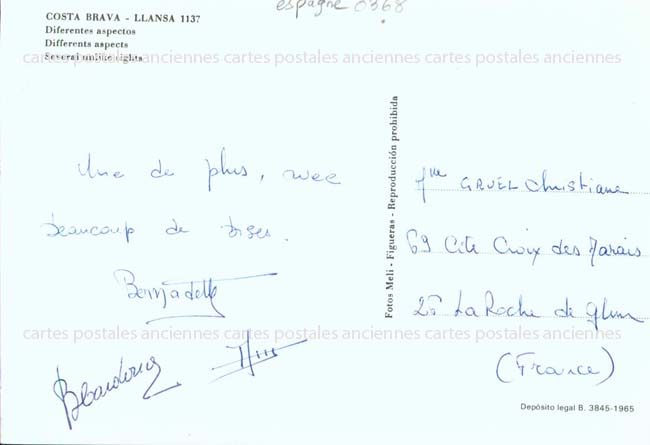 espagne 0368
COSTA BRAVA - LLANSA 1137
Diferentes aspectos
Differents aspects
Several unlike sights
cartes postales anciennes cartes postales anciennes cartes postales anciennes
Une de plus, avec
beaucoup de bises.
Bernadette
Fotos Meli - Figueras - Reproducción prohibida
Mme GRUEL Christiane
69 Cité Croix des Marais
26 La Roche de Glun
(France)
cartes postales anciennes cartes postales anciennes cartes postales anciennes
Depósito legal B. 3845-1965